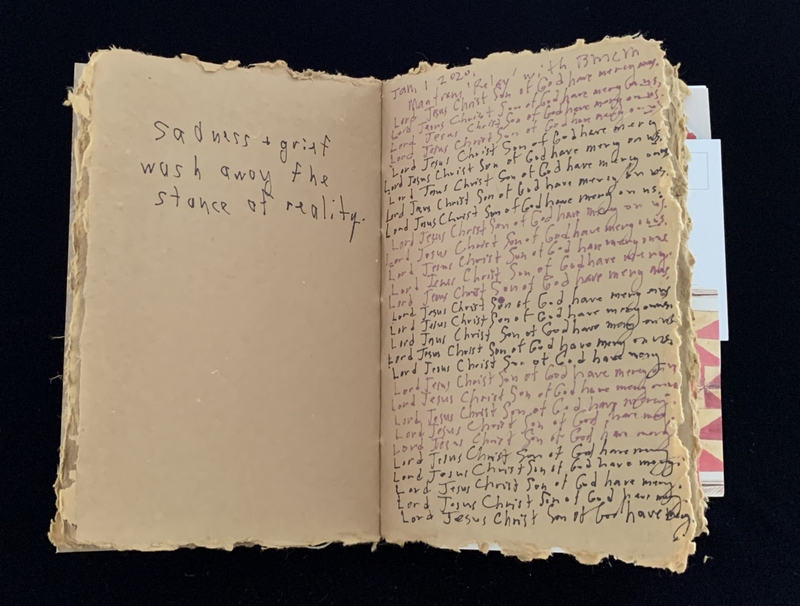 sadness + grief
wash away the
stance of reality.
Jan 1 2020.
with BMCM
Lord Jesus Christ Son of God have mercy on us.
Lord Jesus Christ Son of God have mercy on us.
Lord Jesus Christ Son of God have mercy on us.
Lord Jesus Christ Son of God have mercy on us.
Lord Jesus Christ Son of God have mercy
Lord Jesus Christ Son of God have mercy on us.
Lord Jesus Christ Son of God have mercy on us
Lord Jesus Christ Son of God have mercy on us
Lord Jesus Christ Son of God have mercy on us.
Lord Jesus Christ Son of God have mercy on us.
Lord Jesus Christ Son of God have mercy on us.
Lord Jesus Christ Son of God have mercy on us
Lord Jesus Christ Son of God have mercy
Lord Jesus Christ Son of God have mercy on us
Lord Jesus Christ Son of God have mercy on us
Lord Jesus Christ Son of God have mercy on us
Lord Jesus Christ Son of God have mercy on us.
Lord Jesus Christ Son of God have mercy on us.
Lord Jesus Christ Son of God have mercy
Lord Jesus Christ Son of God have mercy on
Lord Jesus Christ Son of God have mercy on us
Lord Jesus Christ Son of God have mercy
Lord Jesus Christ Son of God have
Lord Jesus Christ Son of God have mercy
Lord Jesus Christ Son of God have mercy
Lord Jesus Christ Son of God have mercy.
Lord Jesus Christ Son of God have mercy.
Lord Jesus Christ Son of God have
Lord Jesus Christ Son of God have